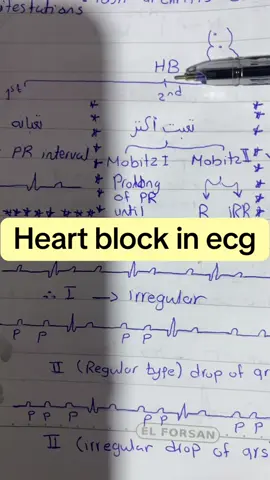 HB
1st
2nd
تعبانه
تعبت أكتر
PR interval
Mobitz I
Mobitz II
Prolong
of PR
until
R
IRR
Heart block in ecg
∴ I → irregular
P P
II (Regular type) drop of qrs
P P P P P P
II (irregular drop of qrs
EL FORSAN